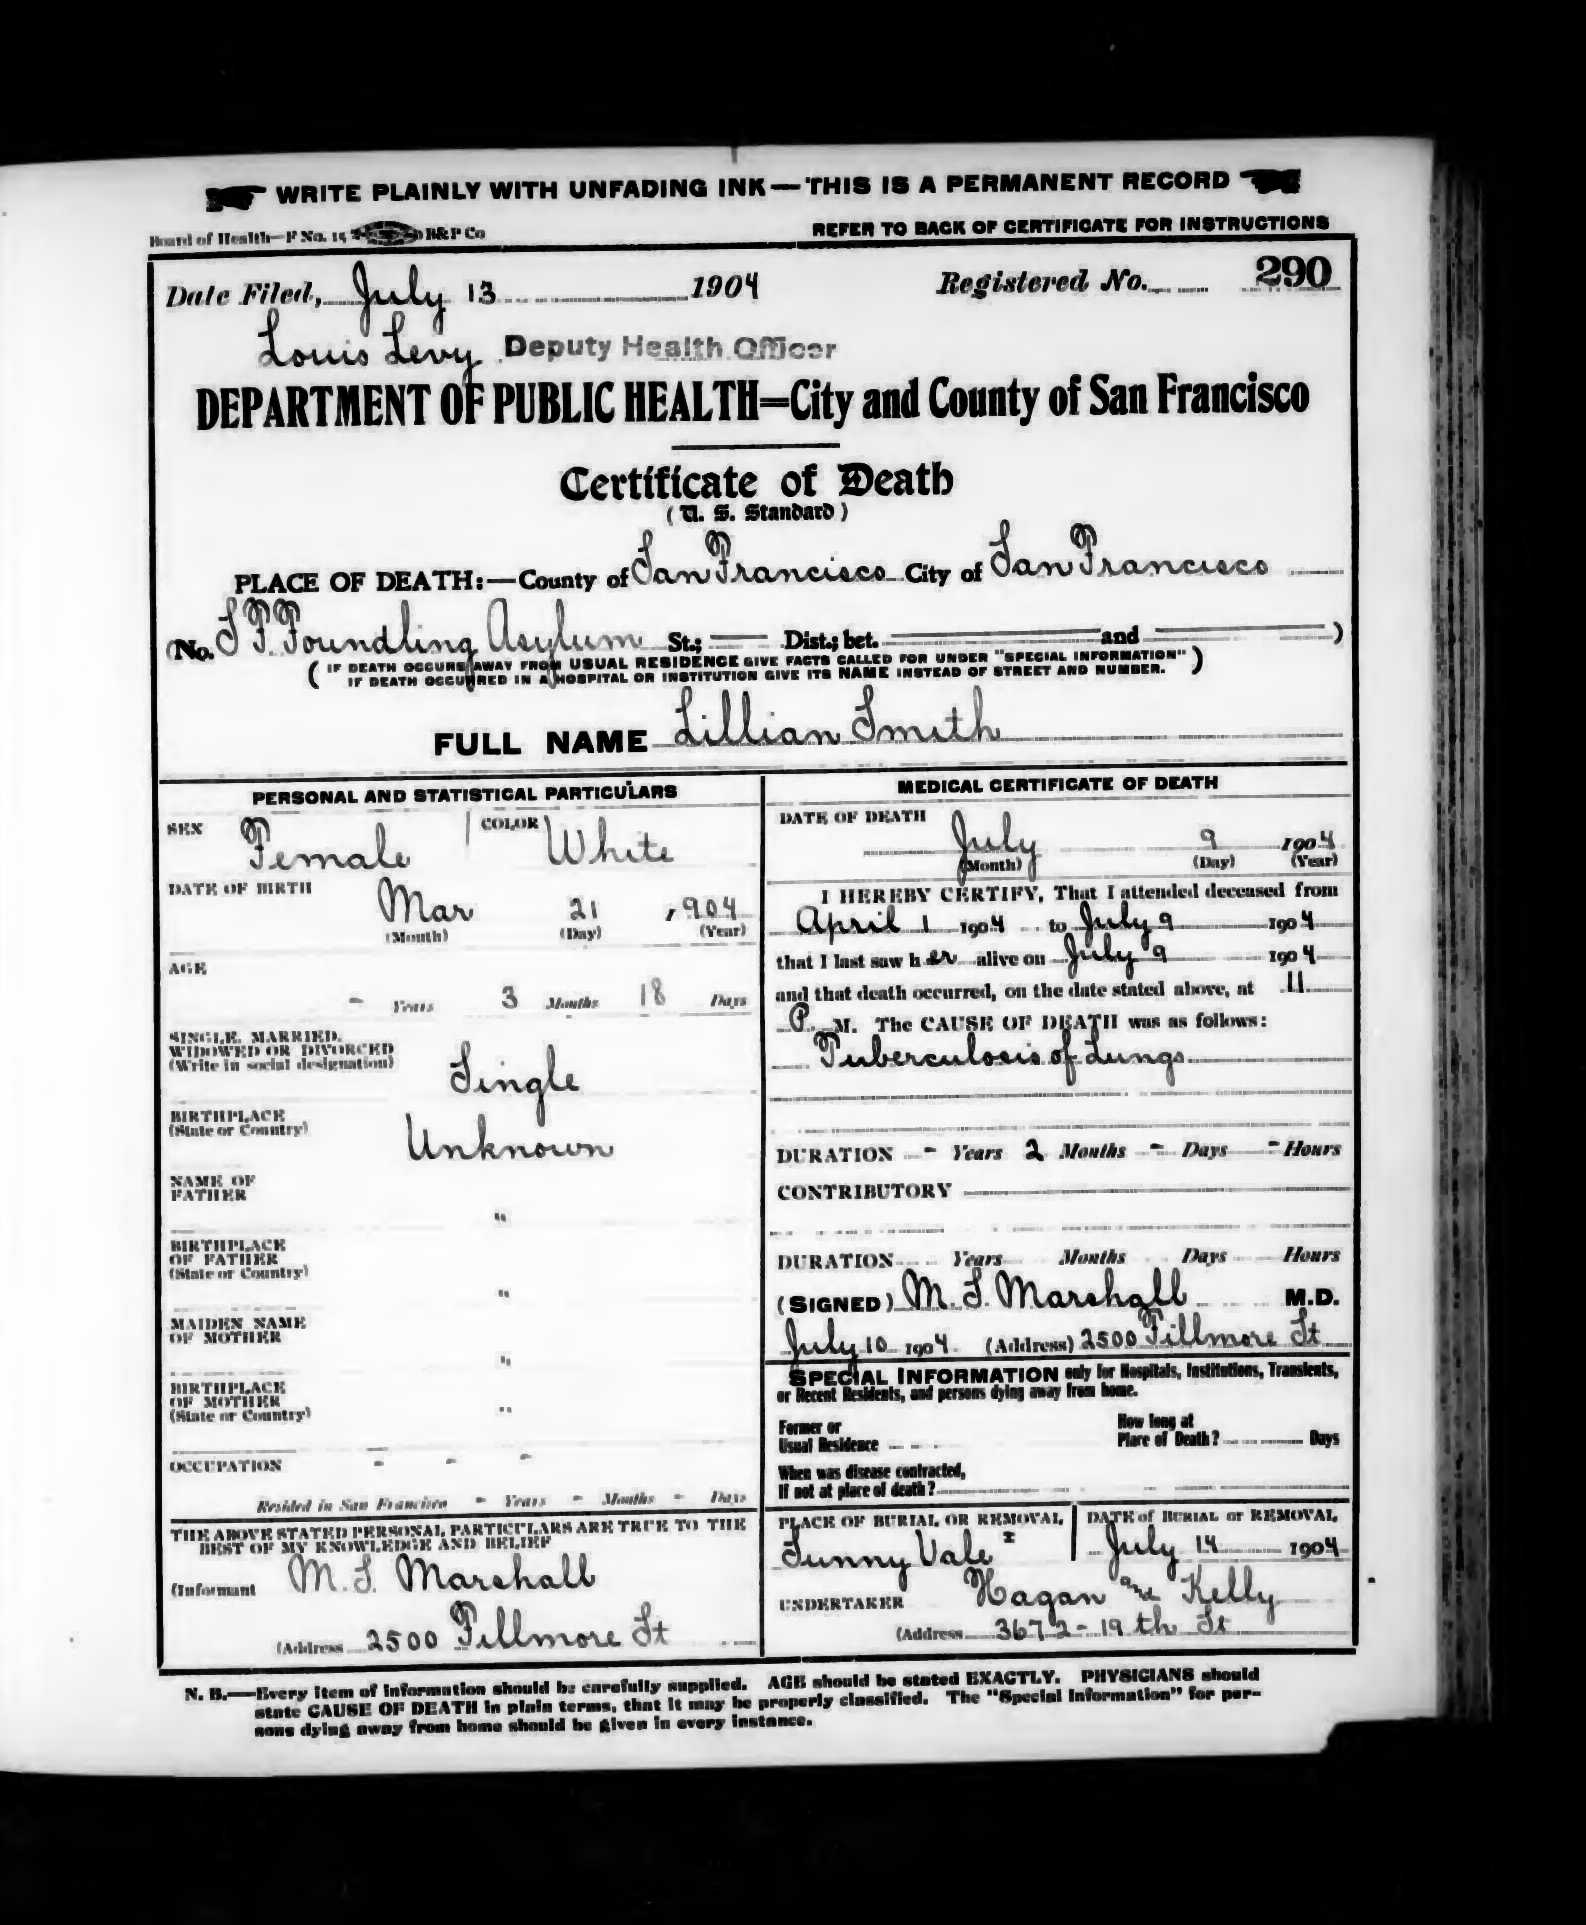 WRITE PLAINLY WITH UNFADING INK — THIS IS A PERMANENT RECORD
Board of Health—F No. 15 B&P Co
REFER TO BACK OF CERTIFICATE FOR INSTRUCTIONS
Date Filed, July 13 1904 Registered No. 290
Louis Levy Deputy Health Officer
DEPARTMENT OF PUBLIC HEALTH=City and County of San Francisco
Certificate of Death
(U. S. Standard)
PLACE OF DEATH:—County of San Francisco City of San Francisco
(No. S F Foundling Asylum St.; — Dist.; bet. — and — )
( IF DEATH OCCURS AWAY FROM USUAL RESIDENCE GIVE FACTS CALLED FOR UNDER "SPECIAL INFORMATION" )
IF DEATH OCCURRED IN A HOSPITAL OR INSTITUTION GIVE ITS NAME INSTEAD OF STREET AND NUMBER.
FULL NAME Lillian Smith
PERSONAL AND STATISTICAL PARTICULARS
SEX Female COLOR White
DATE OF BIRTH Mar 21 , 904
(Month) (Day) (Year)
AGE
- Years 3 Months 18 Days
SINGLE, MARRIED,
WIDOWED OR DIVORCED
(Write in social designation) Single
BIRTHPLACE
(State or Country) Unknown
NAME OF
FATHER "
BIRTHPLACE
OF FATHER
(State or Country) "
MAIDEN NAME
OF MOTHER "
BIRTHPLACE
OF MOTHER
(State or Country) "
OCCUPATION - - -
Resided in San Francisco - Years - Months - Days
THE ABOVE STATED PERSONAL PARTICULARS ARE TRUE TO THE
BEST OF MY KNOWLEDGE AND BELIEF
(Informant M. S. Marshall
(Address 2500 Fillmore St
MEDICAL CERTIFICATE OF DEATH
DATE OF DEATH
July 9 1904
(Month) (Day) (Year)
I HEREBY CERTIFY, That I attended deceased from
April 1 1904 to July 9 1904
that I last saw her alive on July 9 1904
and that death occurred, on the date stated above, at 11
P. M. The CAUSE OF DEATH was as follows:
Tuberculosis of Lungs
DURATION - Years 2 Months - Days - Hours
CONTRIBUTORY
DURATION Years Months Days Hours
(SIGNED) M. S. Marshall M.D.
July 10 1904. (Address) 2500 Fillmore St
SPECIAL INFORMATION only for Hospitals, Institutions, Transients,
or Recent Residents, and persons dying away from home.
Former or
Usual Residence
How long at
Place of Death? Days
When was disease contracted,
If not at place of death?
PLACE OF BURIAL OR REMOVAL
Sunny Vale
DATE of BURIAL or REMOVAL
July 14 1904
UNDERTAKER Hagan and Kelly
(Address 3672 - 19th St
N. B.—Every item of information should be carefully supplied. AGE should be stated EXACTLY. PHYSICIANS should
state CAUSE OF DEATH in plain terms, that it may be properly classified. The "Special Information" for per-
sons dying away from home should be given in every instance.